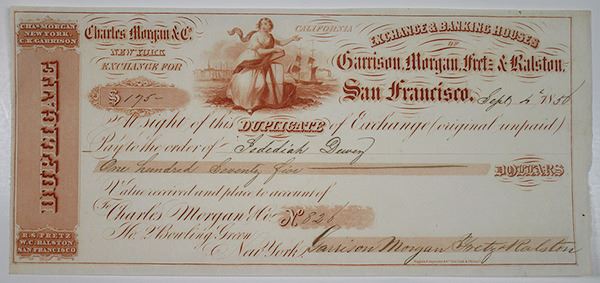 CHAS MORGAN
NEW YORK
C.K. GARRISON
DUPLICATE
R.S. FRETZ
W.C. RALSTON
SAN FRANCISCO
Charles Morgan & Co.
NEW YORK
EXCHANGE FOR
$ 175-
CALIFORNIA
EXCHANGE & BANKING HOUSES
OF
Garrison, Morgan, Fretz & Ralston,
San Francisco, Sept 2d 1856
At sight of this DUPLICATE of Exchange (original unpaid)
Pay to the order of Jedediah Dewey
One hundred Seventy five DOLLARS
Value received and place to account of
To Charles Morgan & Co. No 826
No. 2 Bowling Green
New York. Garrison Morgan Fretz & Ralston